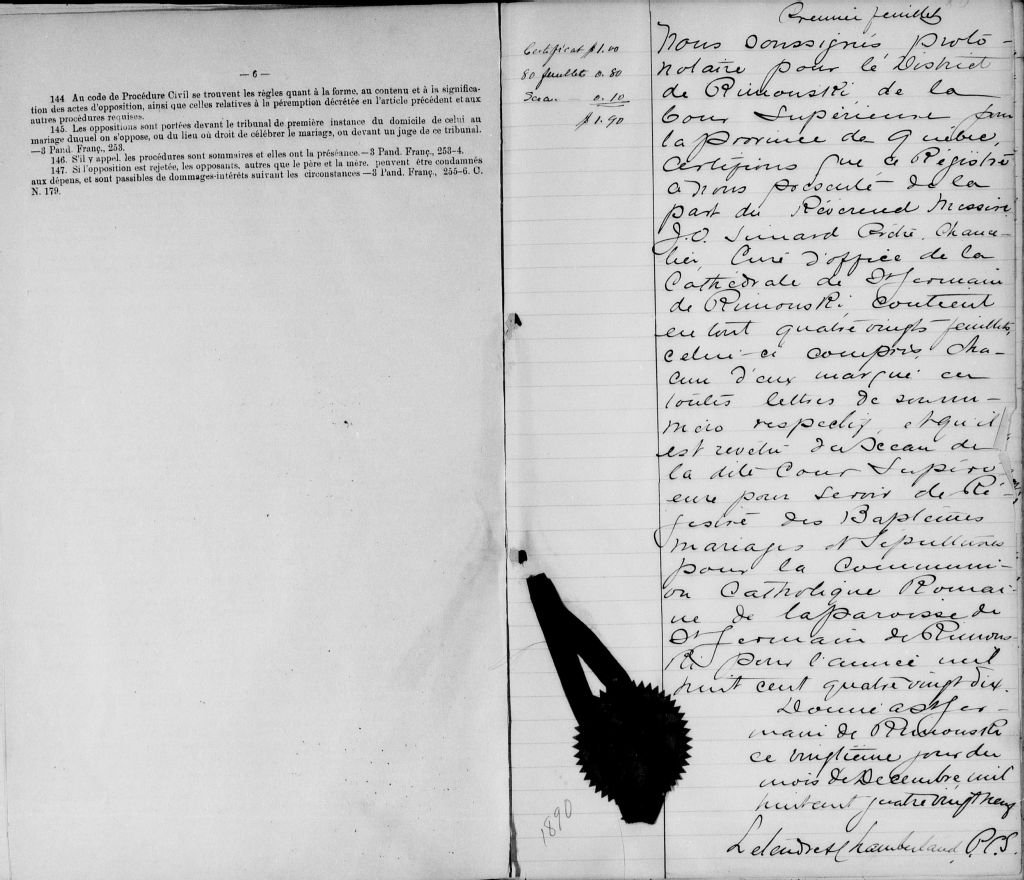 — 6 —
144 Au code de Procédure Civil se trouvent les règles quant à la forme, au contenu et à la significa-
tion des actes d'opposition, ainsi que celles relatives à la péremption décrétée en l'article précédent et aux
autres procédures requises.
145. Les oppositions sont portées devant le tribunal de première instance du domicile de celui au
mariage duquel on s'oppose, ou du lieu où droit de célébrer le mariage, ou devant un juge de ce tribunal.
—3 Pand. Franç., 253.
146. S'il y appel, les procédures sont sommaires et elles ont la préséance.—3 Pand. Franç., 253-4.
147. Si l'opposition est rejetée, les opposants, autres que le père et la mère, peuvent être condamnés
aux dépens, et sont passibles de dommages-intérêts suivant les circonstances —3 Pand. Franç., 255-6. C.
N. 179.
Certificat $1.00
80 feuillets 0.80
Sceau — 0.10
$1.90
1890
Premier feuillet
Nous soussignés, proto-
notaire pour le District
de Rimouski, de la
Cour Supérieure pour
la province de Québec,
certifions que ce Régistre
à nous présenté de la
part du Révérend Messire
J.O. Simard Prêtre, Chance-
lier, Curé d'office de la
Cathédrale de St Germain
de Rimouski, contient
en tout quatre vingts feuillets,
celui-ci compris, cha-
cun d'eux marqué en
toutes lettres de son nu-
méro respectif, et qu'il
est revêtu du Sceau de
la dite Cour Supéri-
eure pour servir de Ré-
gistre des Baptêmes
mariages et Sépultures
pour la Communi-
on Catholique Romai-
ne de la paroisse de
St Germain de Rimous-
ki pour l'année mil
huit cent quatre vingt dix.
Donné à St Ger-
main de Rimouski
ce vingtième jour du
mois de Decembre mil
huit cent quatre vingt neuf
Letendre & Chamberland, P.C.S.